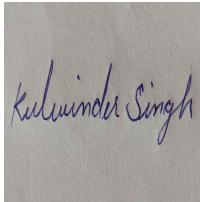 Kulwinder Singh